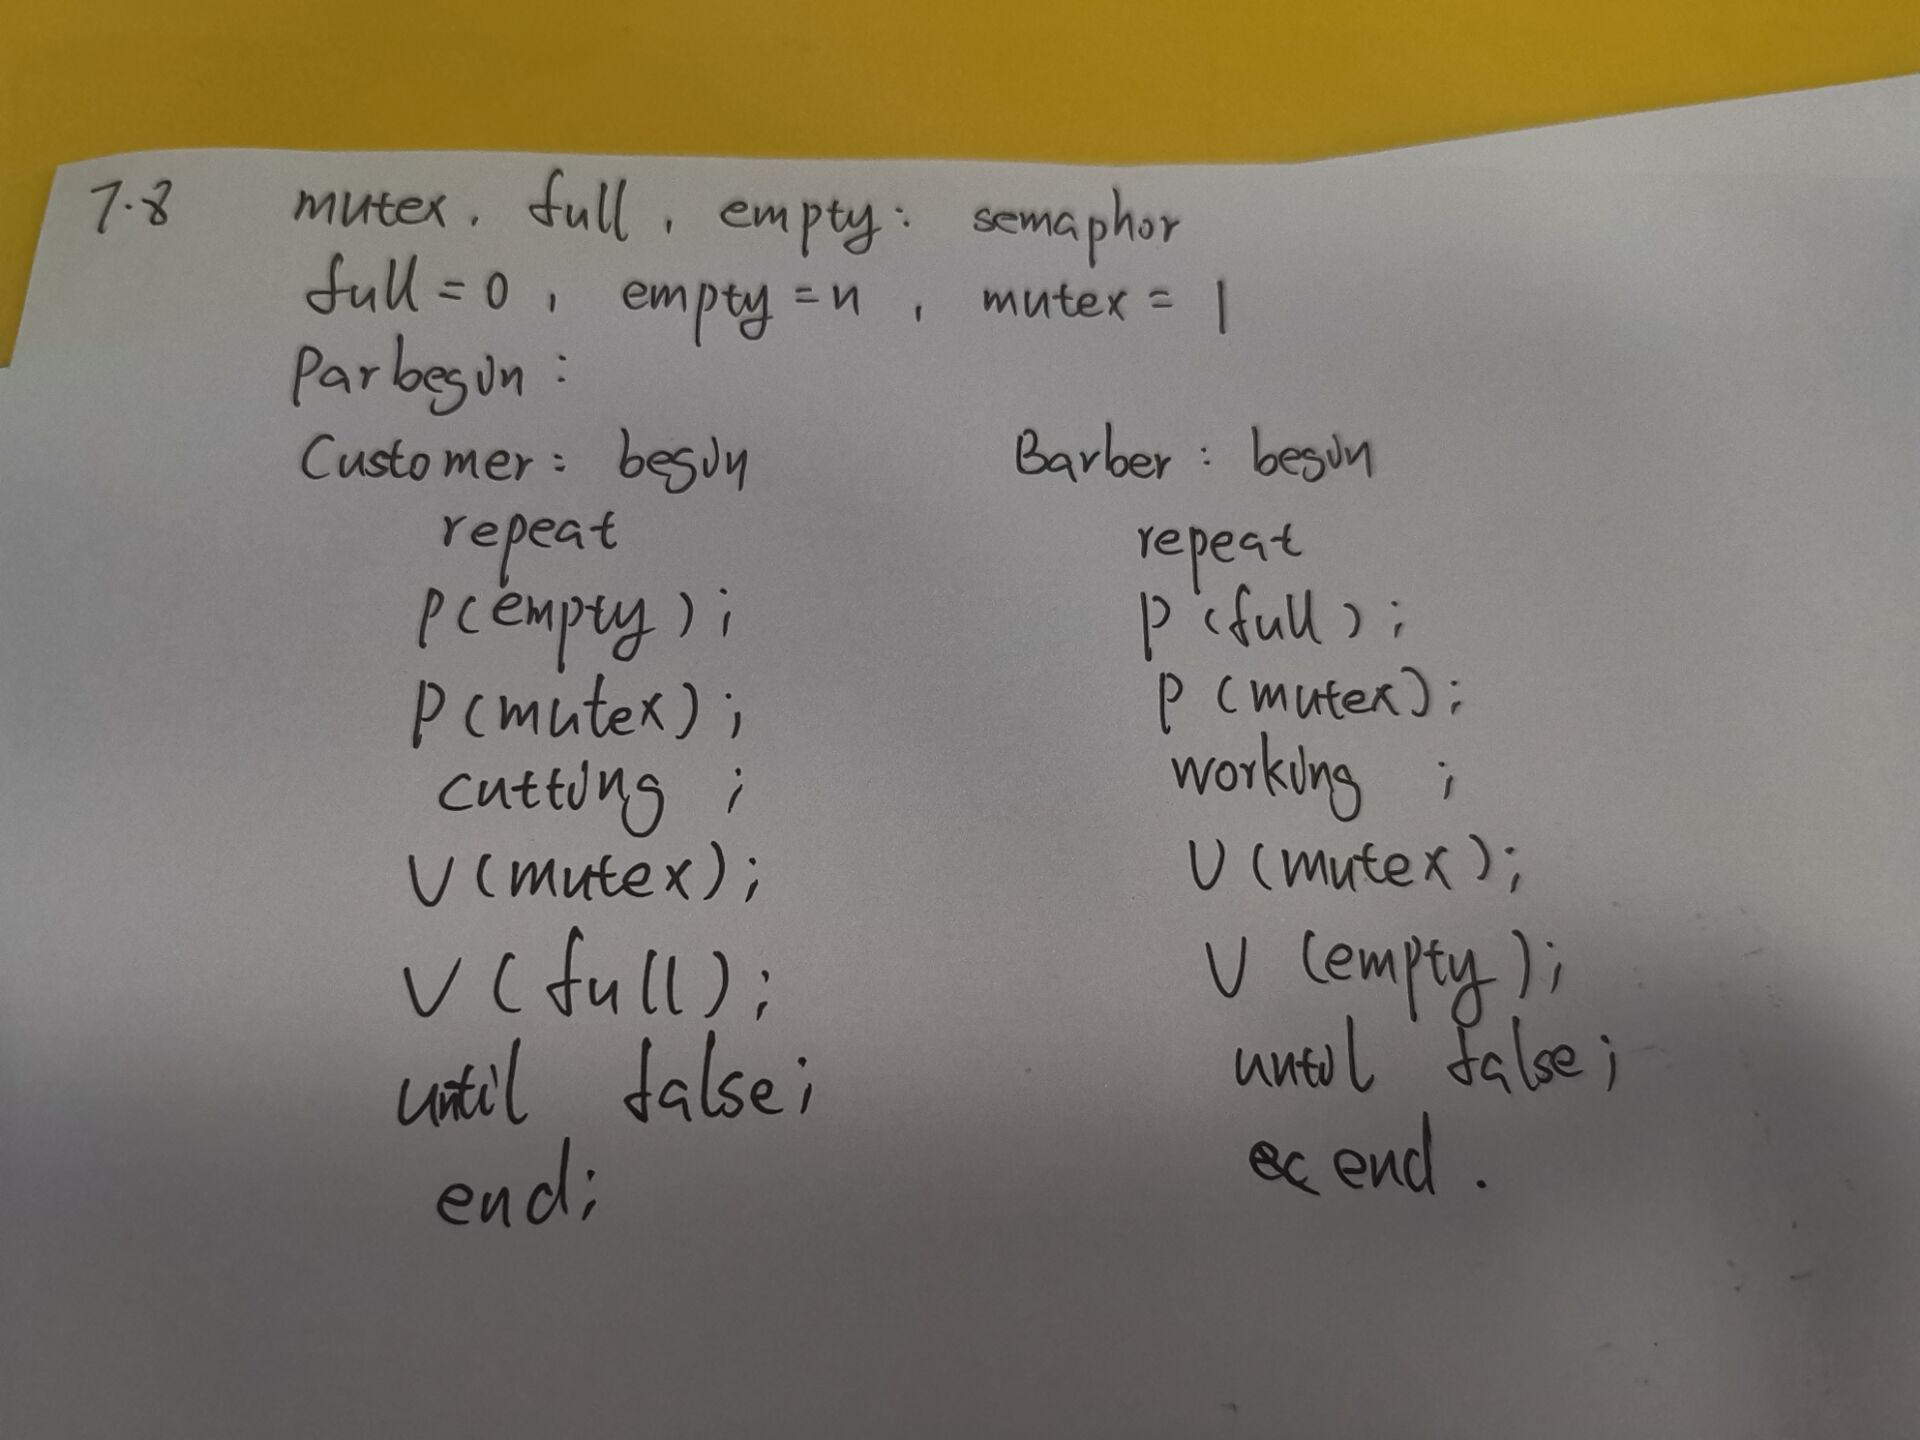 7.8 mutex, full, empty: semaphor
full = 0, empty = n, mutex = 1
Parbegin:
Customer: begin
repeat
P(empty);
P(mutex);
cutting;
V(mutex);
V(full);
until false;
end;
Barber: begin
repeat
P(full);
P(mutex);
working;
V(mutex);
V(empty);
until false;
end.